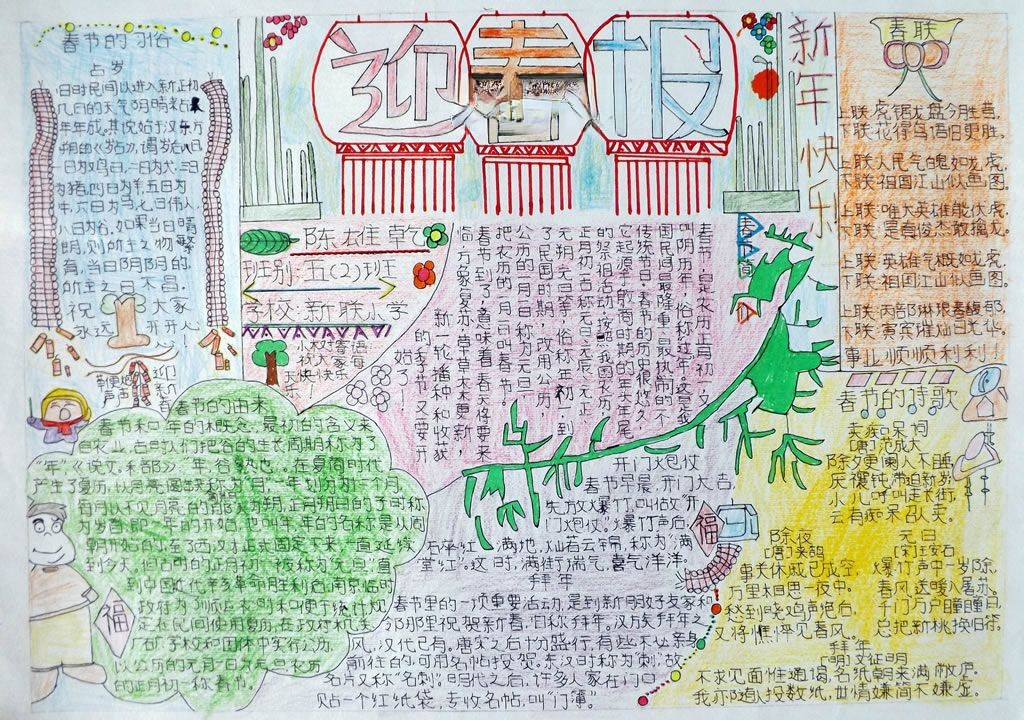 迎春报
新年快乐
春节的习俗
占岁
旧时民间以进入新正初
几日的天气阴晴来占
年年成。其说始于汉东方
朔的《岁占》，谓岁后八日
一日为鸡日，二日为犬，三日
为猪，四日为羊，五日为
牛，六日为马，七日为人，
八日为谷。如果当日晴
朗，则所主之物繁
育，当日阴的，
所主之日不昌。
祝大家
永远开开心心！
陈雄乾
班别：五(2)班
学校：新联小学
祝大家
快快乐乐
春联
上联：虎踞龙盘今胜昔，
下联：花得鸟语旧更胜。
上联：人民气魄如龙虎，
下联：祖国江山似画图。
上联：唯大英雄能伏虎，
下联：是有俊杰敢擒龙。
上联：英雄气概如龙虎，
下联：祖国江山似画图。
事业顺顺利利！
春节
春节，是农历正月初一，又
叫阴历年，俗称过年，这是我
国民间最隆重、最热闹的一个
传统节日。春节的历史很悠久，
它起源于殷商时期的年头年尾
的祭祖活动。按照我国农历，
正月初一古称元日、元辰、元正、
元朔、元旦等，俗称年初一，到
了民国时期，改用公历，
公历的一月一日称为元旦，
把农历的一月一日叫春节。
春节到了，意味着春天将要来
临，万象复苏草木更新，
新一轮播种和收获
的季节又要开
始了！
春节的由来
春节和年的概念，最初的含义来
自农业，古时人们把谷的生长周期称为了
“年”，《说文·禾部》：“年，谷熟也”。在夏商时代
产生了夏历，以月亮圆缺为月，一年划分为十二个月，
每月以不见月亮的那天为朔，正月朔日的子时称
为岁首，即一年的开始，也叫年，年的名称是从周
朝开始的，至了西汉才正式固定下来，一直延续
到今天。但古时的正月初一被称为“元旦”，直
到中国近代辛亥革命胜利后，南京临时
政府为了顺应农时和便于统计，规
定在民间使用夏历，在政府机关、
厂矿、学校和团体中实行公历，
以公历的元月一日为元旦，农历
的正月初一称春节。
福
开门火包仗
春节早晨，开门大吉，
先放爆竹，叫做“开
门炮仗”。爆竹声后，
碎红满地，灿若云锦，称为“满
堂红”。这时，满街瑞气，喜气洋洋。
拜年
春节里的一项重要活动，是到新朋好友家和
邻那里祝贺新春，旧称拜年。汉族拜年之
风，汉代已有。唐宋之后十分盛行，有些不必亲身
前往的，可用名帖投贺。东汉时称为“刺”，故
名片又称“名刺”。明代之后，许多人家在门口
贴一个红纸袋，专收名帖，叫“门簿”。
福
春节的诗歌
卖痴呆词
[唐]范成大
除夕更阑人不睡，
厌禳钝滞迎新岁；
小儿呼叫走长街，
云有痴呆召人卖。
除夜
[唐]来鹄
事关休戚已成空，
万里相思一夜中。
愁到晓鸡声绝后，
又将憔悴见春风。
元日
[宋]王安石
爆竹声中一岁除，
春风送暖入屠苏。
千门万户瞳瞳日，
总把新桃换旧符。
拜年
[明]文征明
不求见面惟通谒，名纸朝来满敝庐。
我亦随人投数纸，世情嫌简不嫌虚。